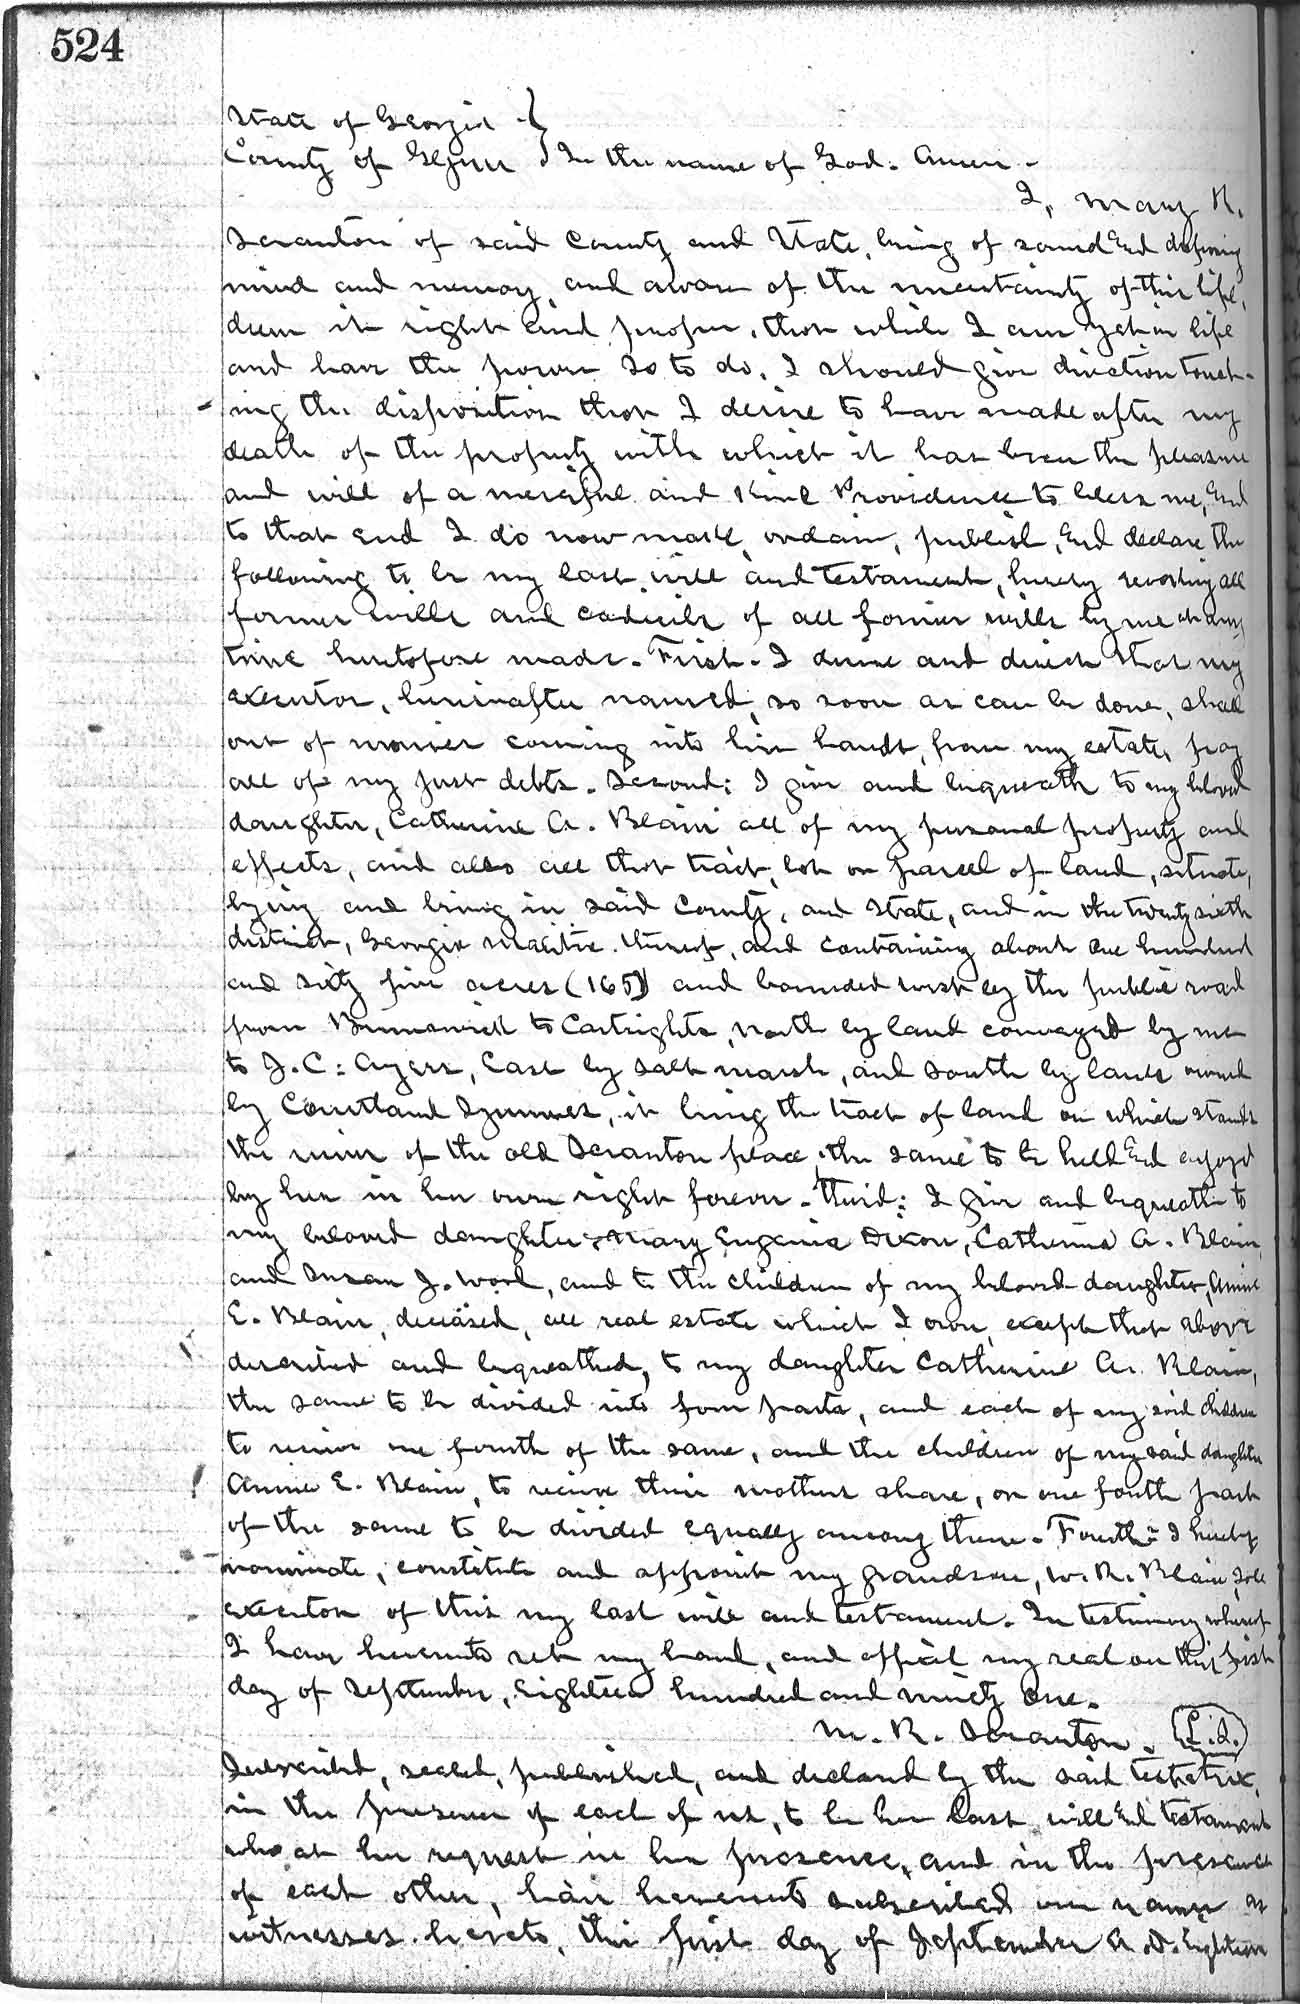 524
State of Georgia }
County of Glynn } In the name of God. Amen -
I, Mary R.
Scranton of said County and State, being of sound and disposing
mind and memory, and aware of the uncertainty of this life,
deem it right and proper, that while I am yet in life
and have the power so to do, I should give direction touch-
ing the disposition that I desire to have made after my
death of the property with which it has been the pleasure
and will of a merciful and kind Providence to bless me, and
to that end I do now make, ordain, publish, and declare the
following to be my last will and testament, hereby revoking all
former wills and codicils of all former wills by me at any
time heretofore made. First. I desire and direct that my
executor, hereinafter named, so soon as can be done, shall
out of monies coming into his hands, from my estate, pay
all of my just debts. Second: I give and bequeath to my beloved
daughter, Catherine A. Blain all of my personal property and
effects, and also all that tract, lot or parcel of land, situate,
lying and being in said County, and State, and in the twenty sixth
district, Georgia Militia thereof, and containing about one hundred
and sixty five acres (165) and bounded west by the public road
from Brunswick to Cartrights, North by land conveyed by me
to J. C. Ayers, East by salt marsh, and South by lands owned
by Courtland Symmes, it being the tract of land on which stands
the ruins of the old Scranton place, the same to be held and enjoyed
by her in her own right forever. Third: I give and bequeath to
my beloved daughters Mary Eugenia Dixon, Catherine A. Blain,
and Susan J. Wool, and to the children of my beloved daughter, Annie
E. Blain, deceased, all real estate which I own, except that above
described and bequeathed, to my daughter Catherine A. Blain,
the same to be divided into four parts, and each of my said children
to receive one fourth of the same, and the children of my said daughter
Annie E. Blain, to receive their mothers share, or one fourth part
of the same to be divided equally among them. Fourth: I hereby
nominate, constitute and appoint my grandson, W. R. Blain sole
executor of this my last will and testament. In testimony whereof
I have hereunto set my hand, and affixed my seal on this first
day of September, Eighteen hundred and ninety one.
M. R. Scranton. (L.S.)
Subscribed, sealed, published, and declared by the said testatrix,
in the presence of each of us, to be her last will and testament
who at her request in her presence, and in the presence
of each other, have hereunto subscribed our names as
witnesses hereto, this first day of September A.D. Eighteen